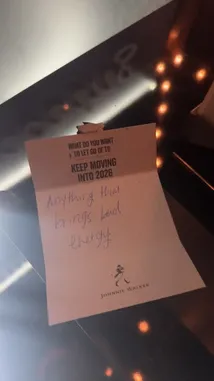 WHAT DO YOU WANT
TO LET GO OF TO
KEEP MOVING
INTO 2026
Anything that
brings bad
energy
JOHNNIE WALKER